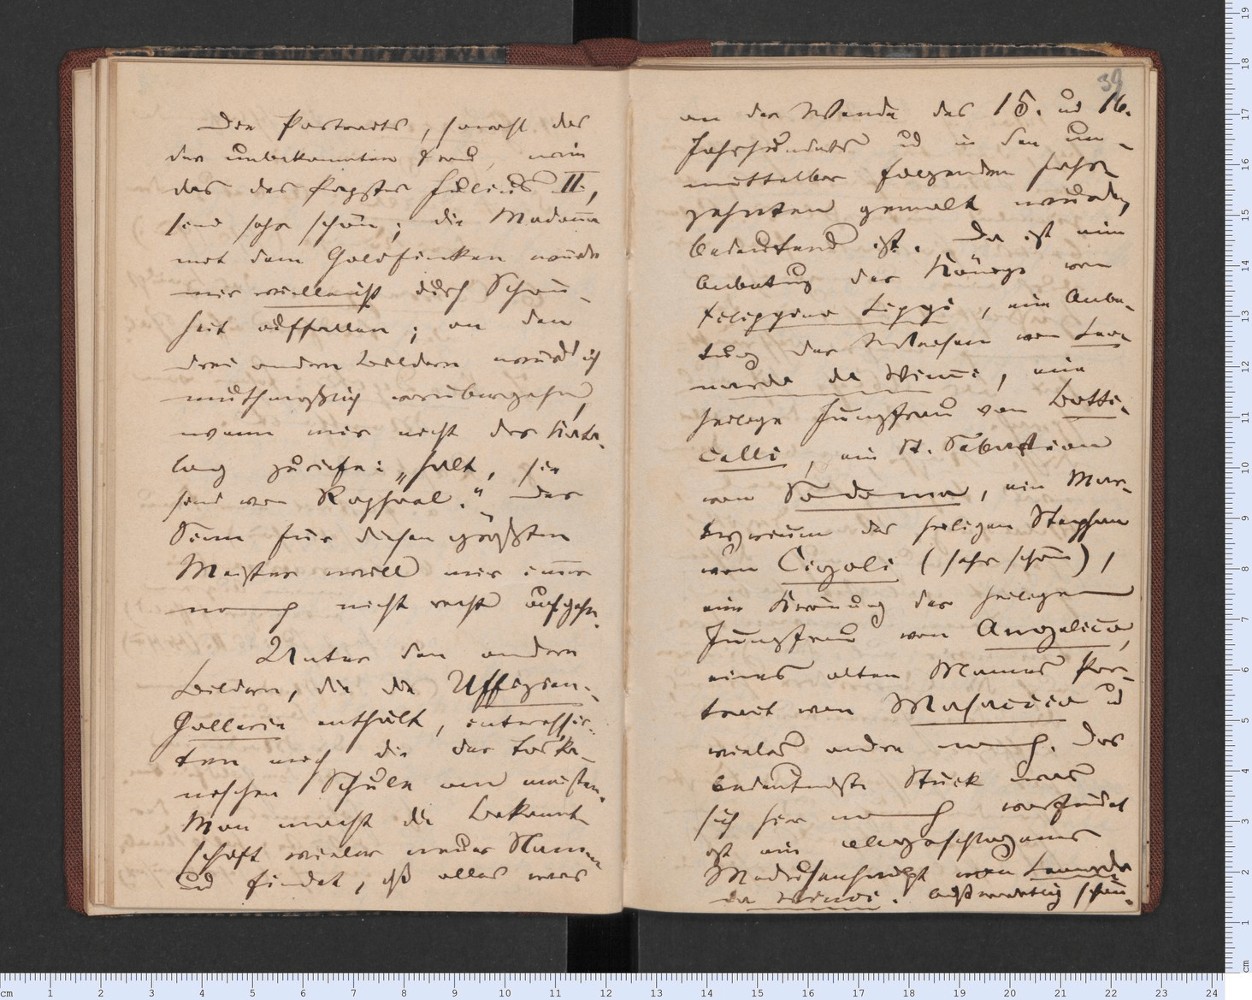 Die Portraits, sowohl das
der unbekannten Frau, wie
das des Papstes Julius II,
sind sehr schön; die Madonna
mit dem Goldfinken würde
mir vielleicht durch Schön-
heit auffallen; an den
drei andern Bildern würd ich
muthmaßlich vorübergehn,
wenn mir nicht der Kata-
log zuriefe: „halt, sie
sind von Raphael." Der
Sinn für diesen größten
Meister will mir immer
noch nicht recht aufgehn.
Unter den andern
Bildern, die die Uffizien-
Gallerie enthält, interessir-
ten mich die der toska-
nischen Schule am meisten.
Man macht die Bekannt-
schaft vieler neuer Namen
und findet, daß alles was
39
an der Wende des 15. und 16.
Jahrhunderts und in den un-
mittelbar folgenden Jahr-
zehnten gemalt wurde,
bedeutend ist. Da ist eine
Anbetung der Könige von
Filippino Lippi, eine Anbe-
tung der Weisen von Leo-
nardo da Vinci, eine
heilige Jungfrau von Botti-
celli, ein St. Sebastian
von Sodoma, ein Mar-
tyrium des heiligen Stephan
von Cigoli (sehr schön),
eine Krönung der heiligen
Jungfrau von Angelico,
eines alten Mannes Por-
trait von Masaccio und
vieles andre noch. Das
bedeutendste Stück was
sich hier noch vorfindet
ist ein abgeschlagenes
Medusenhaupt von Leonardo
da Vinci. Außerordentlich schön-